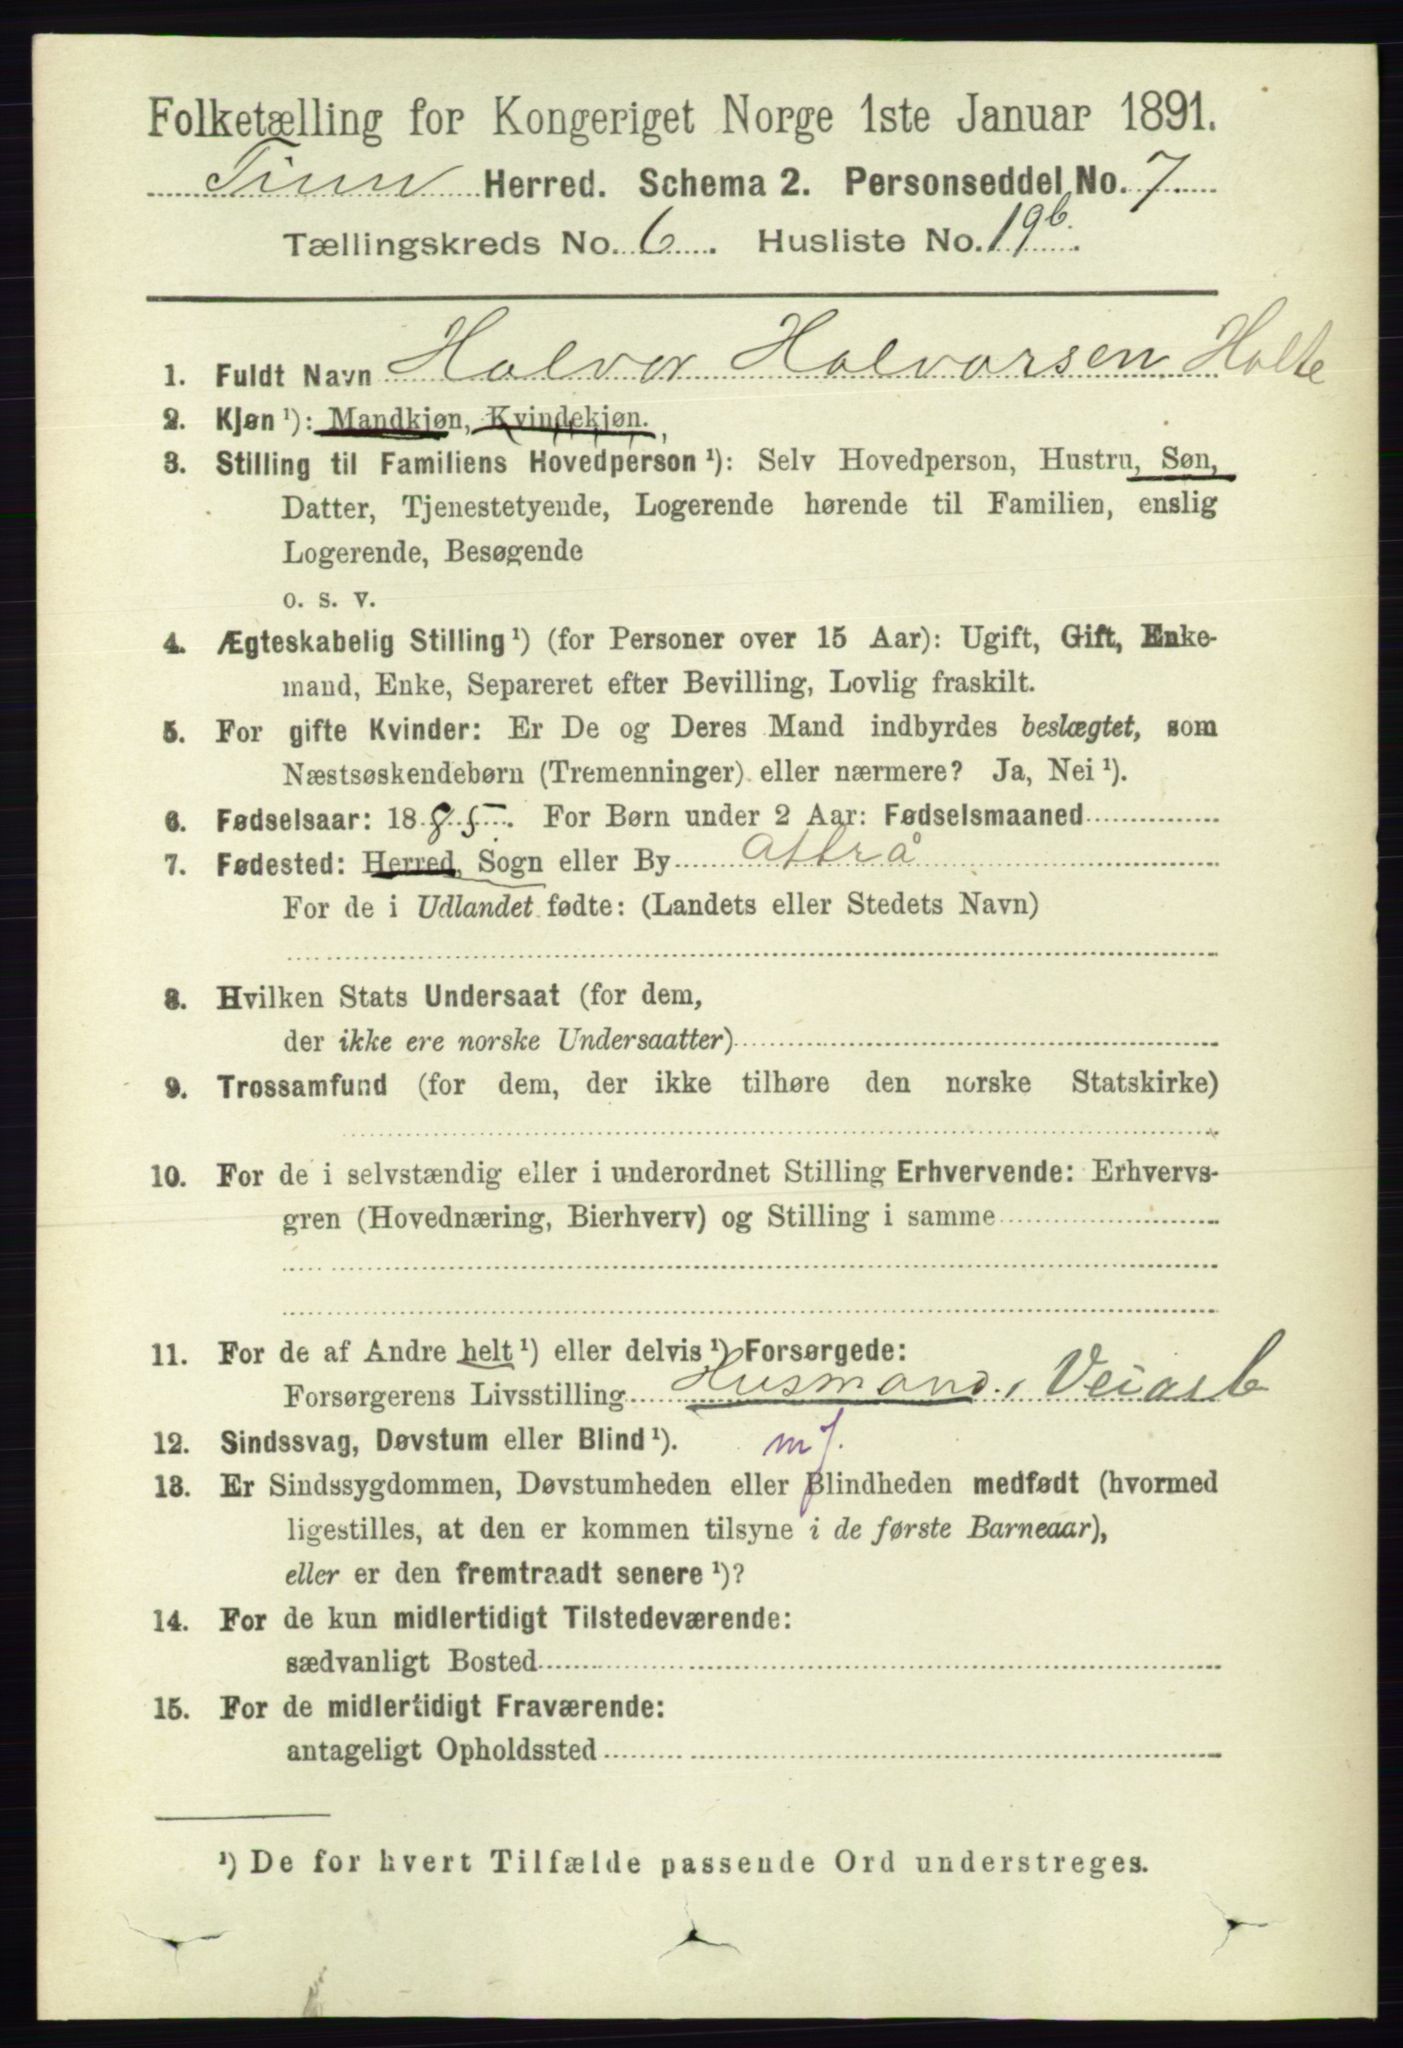 Folketælling for Kongeriget Norge 1ste Januar 1891.
Tinn Herred. Schema 2. Personseddel No. 7
Tællingskreds No. 6. Husliste No. 19b.
1. Fuldt Navn Halvor Halvorsen Holte
2. Kjøn ¹): Mandkjøn, Kvindekjøn.
3. Stilling til Familiens Hovedperson ¹): Selv Hovedperson, Hustru, Søn,
Datter, Tjenestetyende, Logerende hørende til Familien, enslig
Logerende, Besøgende
o. s. v.
4. Ægteskabelig Stilling ¹) (for Personer over 15 Aar): Ugift, Gift, Enke-
mand, Enke, Separeret efter Bevilling, Lovlig fraskilt.
5. For gifte Kvinder: Er De og Deres Mand indbyrdes beslægtet, som
Næstsøskendebørn (Tremenninger) eller nærmere? Ja, Nei ¹).
6. Fødselsaar: 1885. For Børn under 2 Aar: Fødselsmaaned
7. Fødested: Herred, Sogn eller By Attrå
For de i Udlandet fødte: (Landets eller Stedets Navn)
8. Hvilken Stats Undersaat (for dem,
der ikke ere norske Undersaatter)
9. Trossamfund (for dem, der ikke tilhøre den norske Statskirke)
10. For de i selvstændig eller i underordnet Stilling Erhvervende: Erhvervs-
gren (Hovednæring, Bierhverv) og Stilling i samme
11. For de af Andre helt ¹) eller delvis ¹) Forsørgede:
Forsørgerens Livsstilling Husmand, Veiarb
12. Sindssvag, Døvstum eller Blind ¹). mf.
13. Er Sindssygdommen, Døvstumheden eller Blindheden medfødt (hvormed
ligestilles, at den er kommen tilsyne i de første Barneaar),
eller er den fremtraadt senere ¹)?
14. For de kun midlertidigt Tilstedeværende:
sædvanligt Bosted
15. For de midlertidigt Fraværende:
antageligt Opholdssted
¹) De for hvert Tilfælde passende Ord understreges.